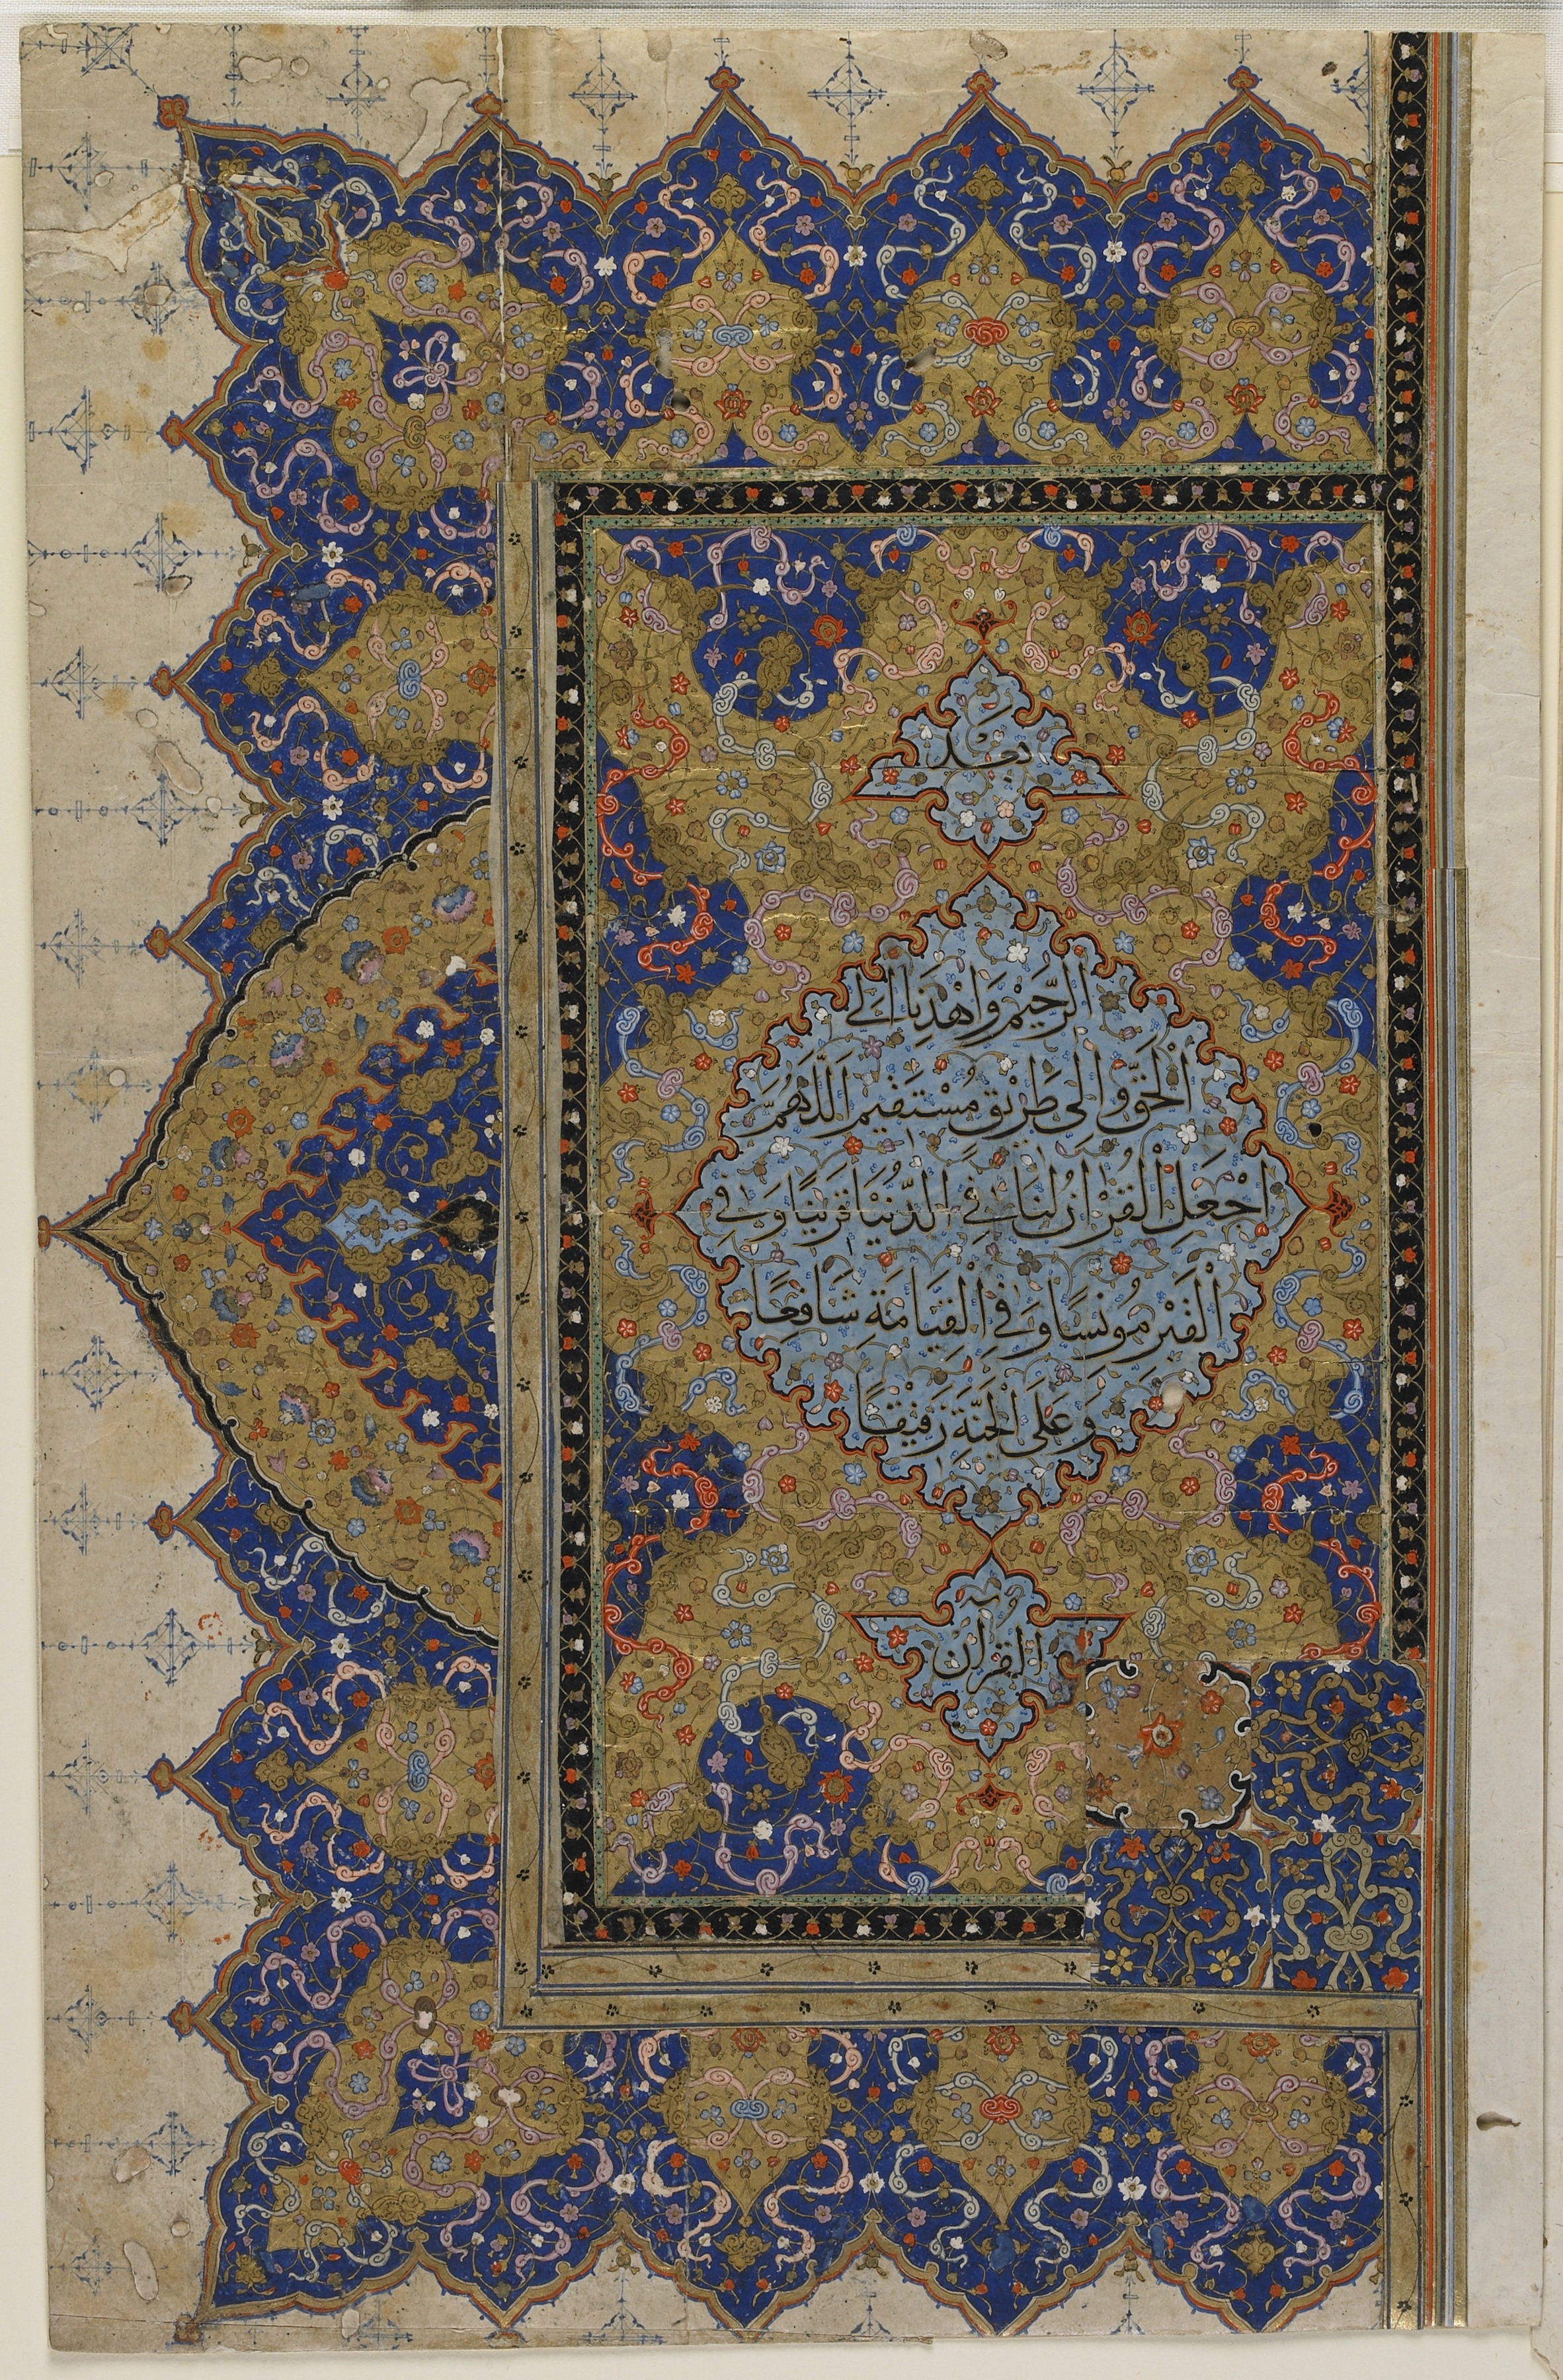 بعد
الرَّحِيْمُ وَاهْدِنَا اِلَى
اْلحَقِّ وَاِلَى طَرِيْقٍ مُسْتَقِيْمٍ اَللّٰهُمَّ
اجْعَلِ الْقُرْاٰنَ لَنَا فِي الدُّنْيَا قَرِيْنًا وَ فِي
اْلقَبْرِ مُونِسًا وَ فِي اْلقِيَامَةِ شَافِعًا
وَ عَلَى اْلجَنَّةِ رَفِيْقًا
القرآن